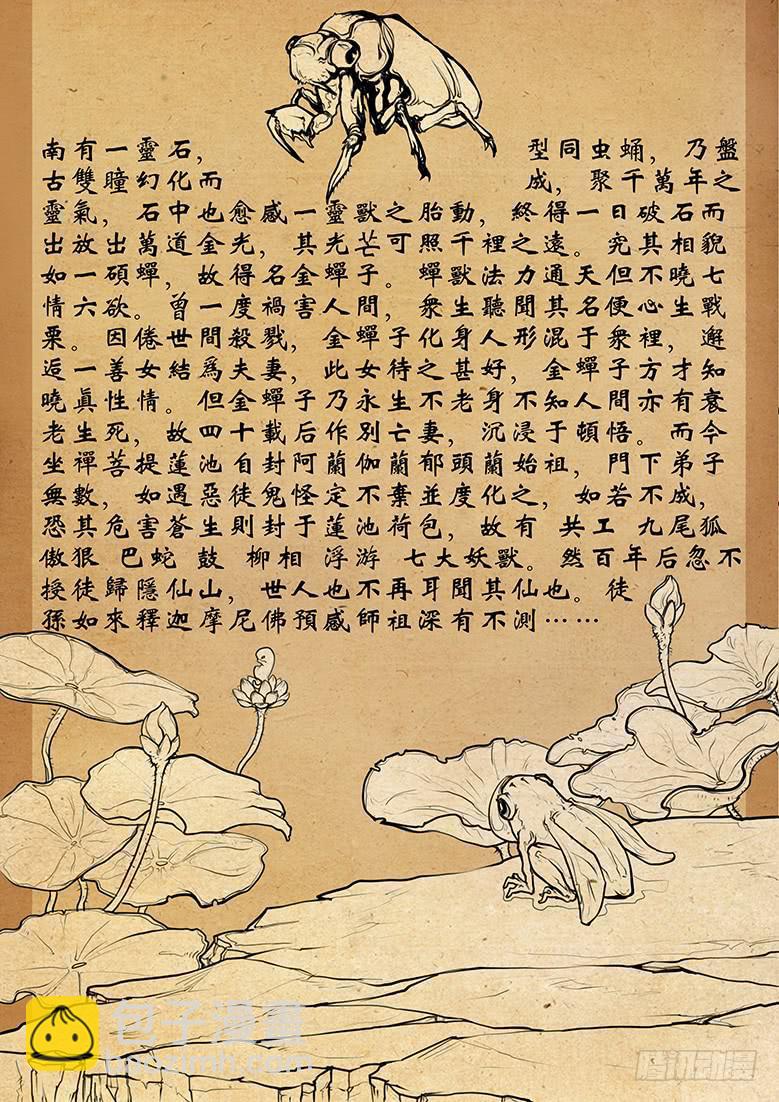 南有一靈石, 型同虫蛹, 乃盤
古雙瞳幻化而 成, 聚千萬年之
靈氣, 石中也愈感一靈獸之胎動, 終得一日破石而
出放出萬道金光, 其光芒可照千裡之遠。究其相貌
如一碩蟬, 故得名金蟬子。蟬獸法力通天但不曉七
情六欲。曾一度禍害人間, 衆生聽聞其名便心生戰
栗。因倦世間殺戮, 金蟬子化身人形混于衆裡, 邂
逅一善女結爲夫妻, 此女待之甚好, 金蟬子方才知
曉眞性情。但金蟬子乃永生不老身不知人間亦有衰
老生死, 故四十載后作別亡妻, 沉浸于頓悟。而今
坐禪菩提蓮池自封阿蘭伽蘭郁頭蘭始祖, 門下弟子
無數, 如遇惡徒鬼怪定不棄並度化之, 如若不成,
恐其危害蒼生則封于蓮池荷包, 故有 共工 九尾狐
傲狠 巴蛇 鼓 柳相 浮游 七大妖獸。然百年后忽不
授徒歸隱仙山, 世人也不再耳聞其仙也。徒
孫如來釋迦摩尼佛預感師祖深有不測……
包子漫畫
baozimh.com
騰訊动漫